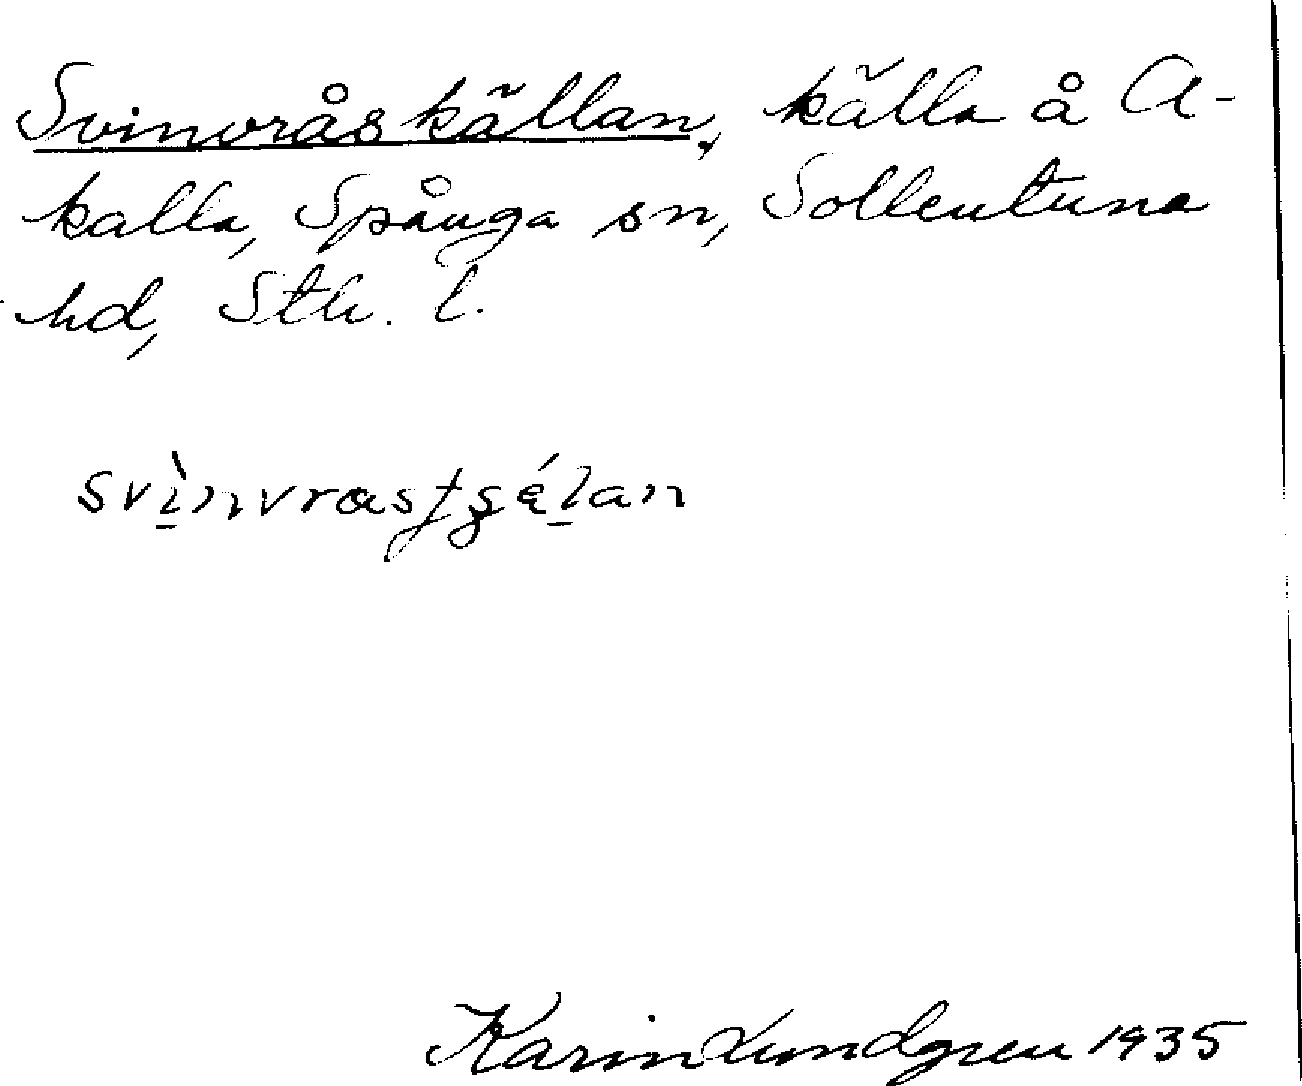 Svinvråskällan, källa å A-
kalla, Spånga sn, Sollentuna
hd, Sth. l.
Karin Lundgren 1935